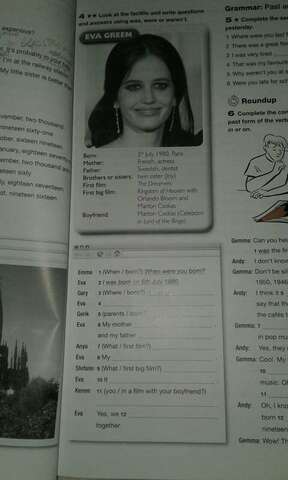 expensive?
I'm at the railway station
My little sister is better th
vember, two thousand
nineteen sixty-one
ober, sixteen nineteen
nuary, eighteen seventeen
vember, two thousand an
nineteen sixty
ly, eighteen seventeen
st, nineteen sixteen
4 ★★ Look at the factfile and write questions
and answers using was, were or weren't.
EVA GREEM
Born: 5th July 1980, Paris
Mother: French, actress
Father: Swedish, dentist
Brothers or sisters: twin sister (Joy)
First film: The Dreamers
First big film: Kingdom of Heaven with
Orlando Bloom and
Marton Csokas
Boyfriend: Marton Csokas (Celeborn
in Lord of the Rings)
Emma 1 (When / born?) When were you born?
Eva 2 I was born on 5th July 1980.
Gary 3 (Where / born?)
Eva 4
Gerik 5 (parents /
Eva 6 My mother
and my father
Anya 7 (What / first film?)
Eva 8 My
Stefano 9 (What / first big film?)
Eva 10 It
Kerem 11 (you / in a film with your boyfriend?)
Eva Yes, we 12
together.
Grammar: Past si
5 ★ Complete the se
1 Where were you last
2 There was a great fo
3 I was very tired
4 That was my favourit
5 Why weren't you at s
6 Were you late for sch
Roundup
6 Complete the con
past form of the verb
in or on.
Gemma: Can you hel
1 was the fir
Andy: I don't know
Gemma: Don't be sil
1950, 1946
Andy: I think it 5
say that th
the cafés 7
in pop mu
Andy: Yes, they
Gemma: Cool. My
10
music. Oh
11
Andy: Oh, I kno
born 12
nineteen
Gemma: Wow! Th